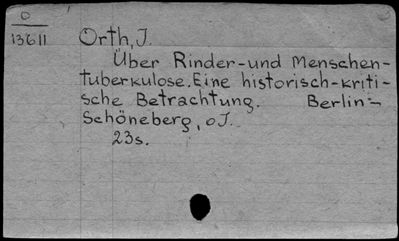 O
13611 Orth, J.
Über Rinder-und Menschen-
tuberkulose. Eine historisch-kriti-
sche Betrachtung. Berlin-
Schöneberg, oJ.
23s.